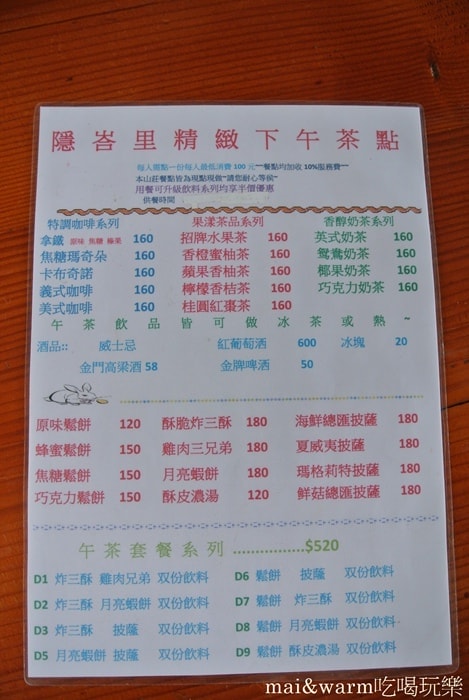 隱峇里精緻下午茶點
每人需點一份每人最低消費 100 元~~餐點均加收 10%服務費~~
本山莊餐點皆為現點現做~請您耐心等侯~
用餐可升級飲料系列均享半價優惠
供餐時間
特調咖啡系列 果漾茶品系列 香醇奶茶系列
拿鐵 原味 焦糖 榛果 160 招牌水果茶 160 英式奶茶 160
焦糖瑪奇朵 160 香橙蜜柚茶 160 鴛鴦奶茶 160
卡布奇諾 160 蘋果香柚茶 160 椰果奶茶 160
義式咖啡 160 檸檬香桔茶 160 巧克力奶茶 160
美式咖啡 160 桂圓紅棗茶 160
午茶飲品皆可做冰茶或熱~
酒品:: 威士忌 紅葡萄酒 600 冰塊 20
金門高梁酒 58 金牌啤酒 50
原味鬆餅 120 酥脆炸三酥 180 海鮮總匯披薩 180
蜂蜜鬆餅 150 雞肉三兄弟 180 夏威夷披薩 180
焦糖鬆餅 150 月亮蝦餅 180 瑪格莉特披薩 180
巧克力鬆餅 150 酥皮濃湯 120 鮮菇總匯披薩 180
午茶套餐系列................$520
D1 炸三酥 雞肉兄弟 双份飲料 D6 鬆餅 披薩 双份飲料
D2 炸三酥 月亮蝦餅 双份飲料 D7 鬆餅 炸三酥 双份飲料
D3 炸三酥 披薩 双份飲料 D8 鬆餅 月亮蝦餅 双份飲料
D5 月亮蝦餅 披薩 双份飲料 D9 鬆餅 酥皮濃湯 双份飲料
mai&warm吃喝玩樂